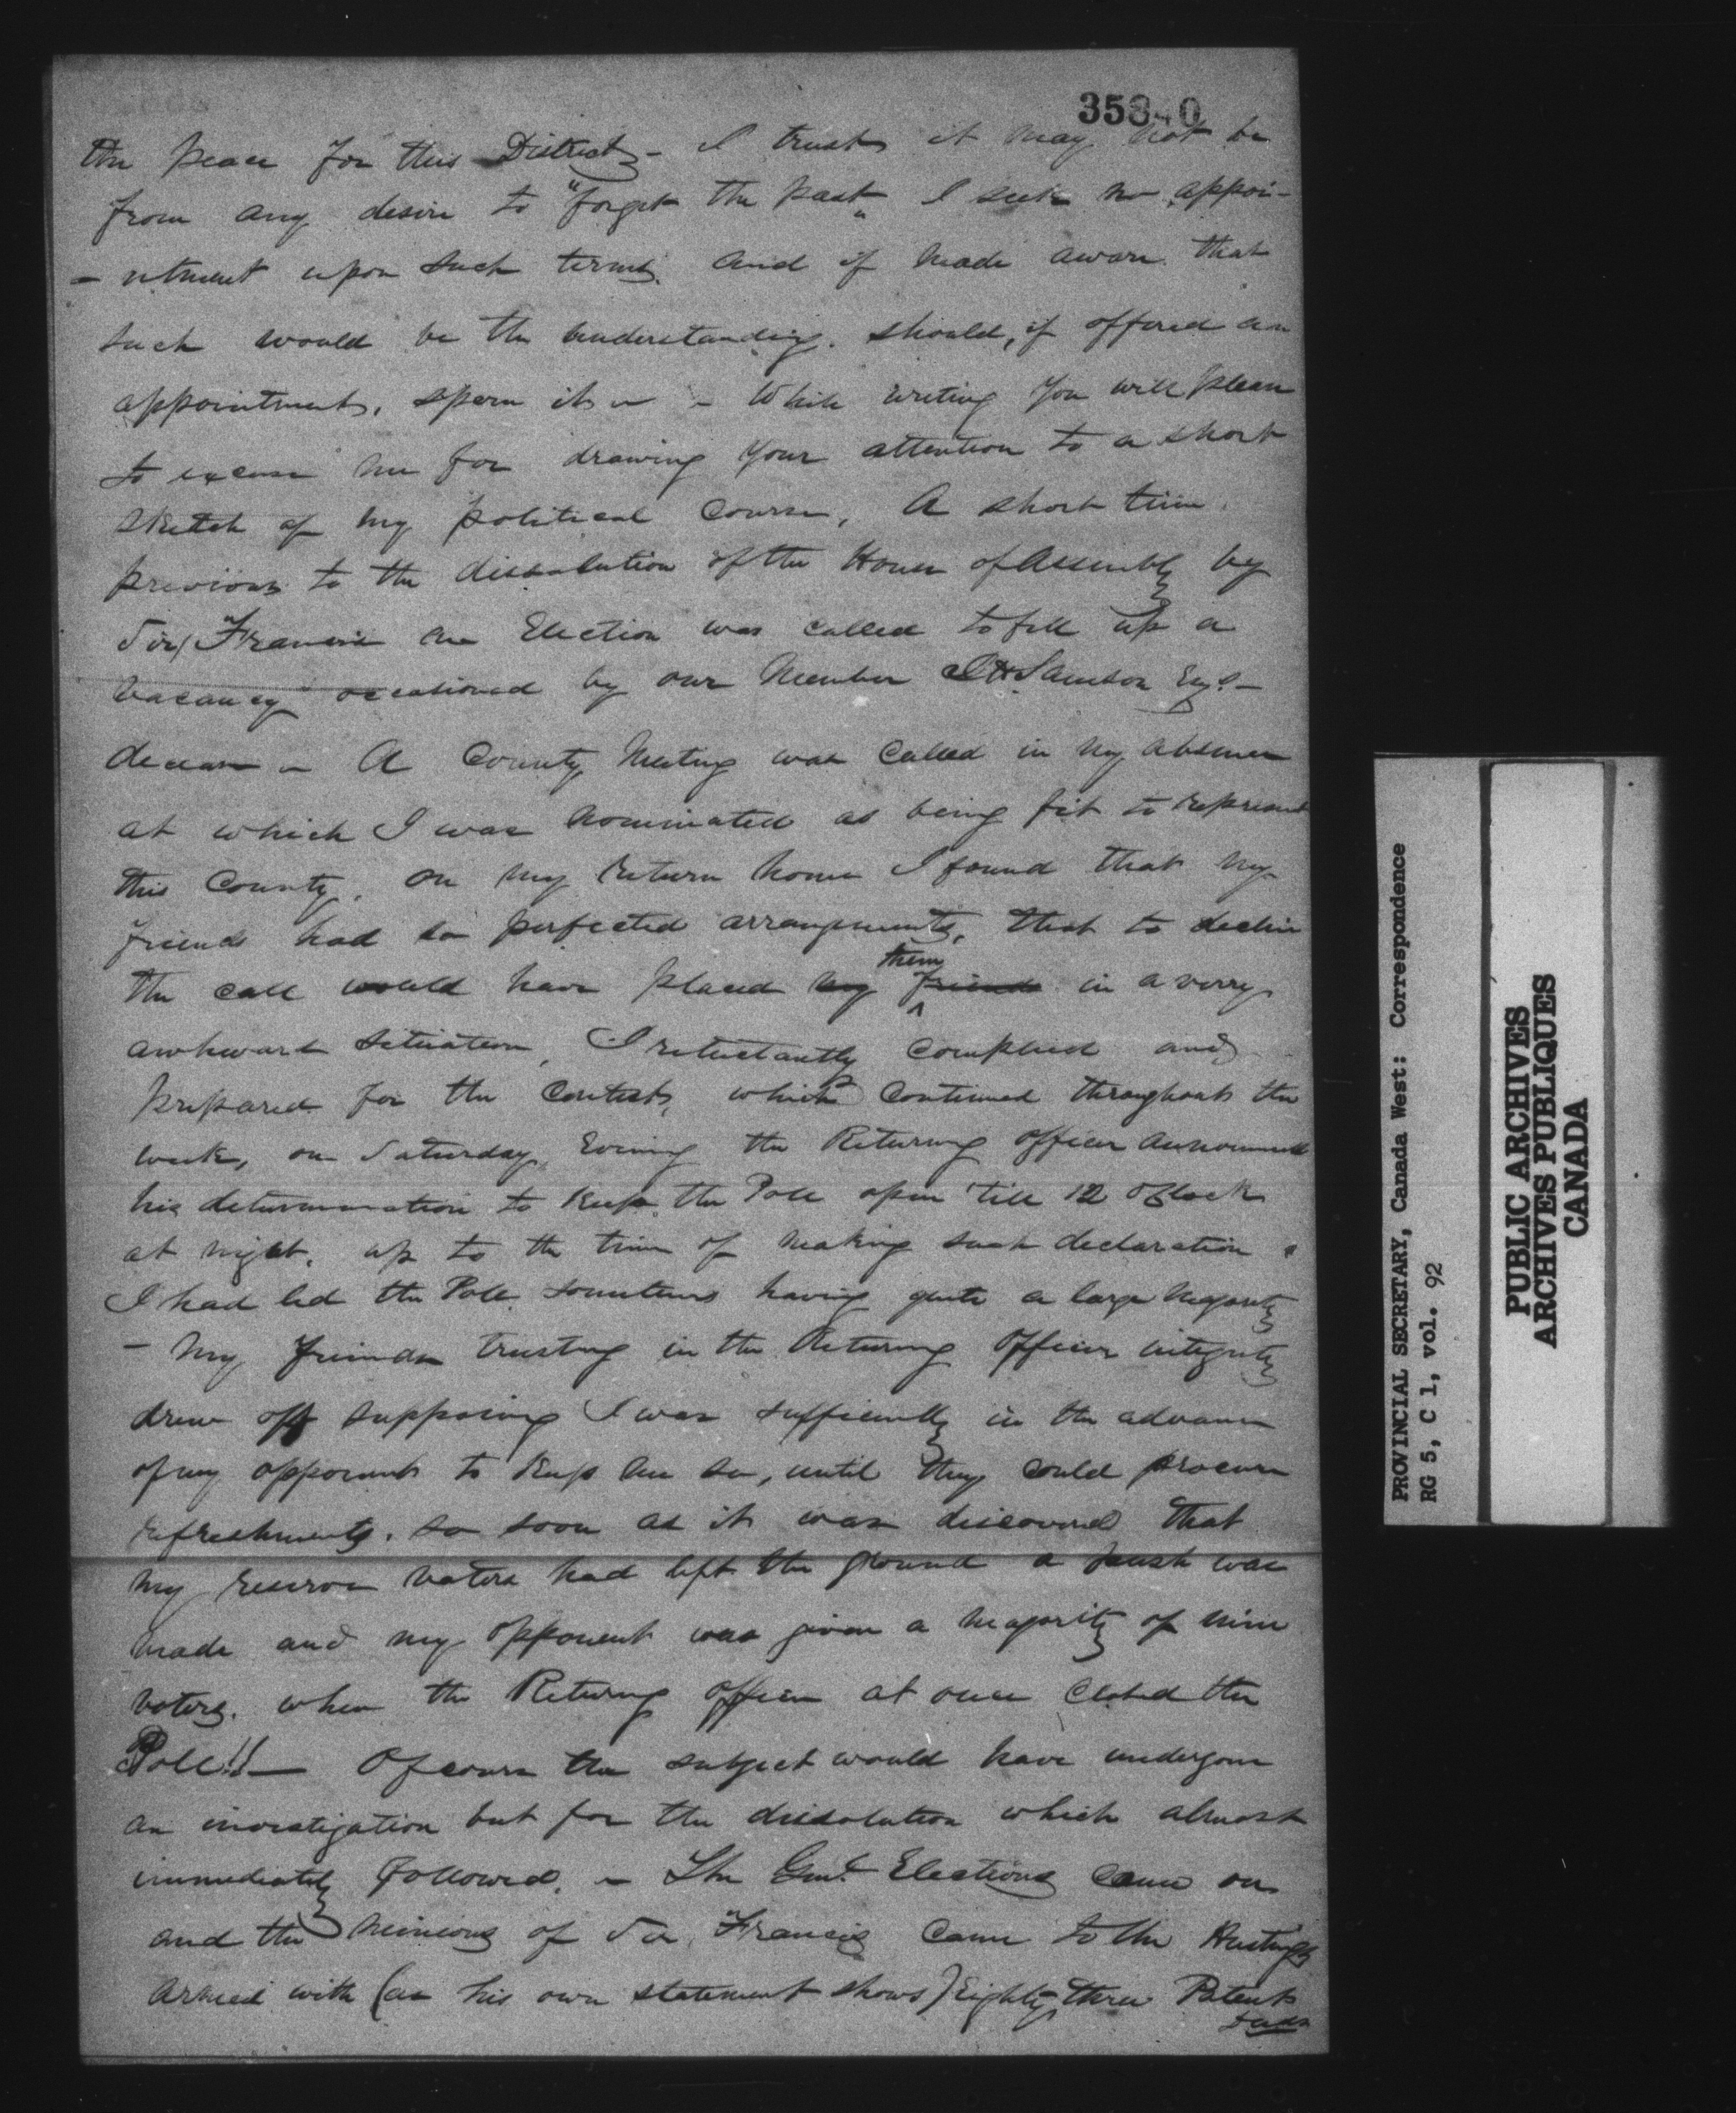 35840
the peace for this District – I trust it may not be
from any desire to "forget the past" I seek no appoi-
- ntment upon such terms. and if made aware that
such would be the understanding. should, if offered an
appointment, spern it – – While writing you will please
to excuse me for drawing your attention to a short
sketch of my political course, A short time
previous to the dissolution of the House of Assembly by
Sir Francis an Election was called to fill up a
vacancy occationed by our Member J H Samson Esq.–
decease – A County Meeting was called in my absence
at which I was nominated as being fit to represent
this County. on my return home I found that my
friends had so perfected arrangements, that to decline
them
the call would have placed my friends in a verry
awkward situation, I reluctantly complied and
prepared for the contest, which continued throughout the
week, on Saturday Evening the Returning officer announced
his determination to keep the Poll open 'till 12 oClock
at night. up to the time of making such declaration
I had led the Poll sometimes having quite a large Majority
– My friends trusting in the Returning Officers integrity
drew off supposing I was sufficiently in the advance
of my opponent to keep me so, until they could procure
refreshments. so soon as it was discovered that
my reserve voters had left the ground a push was
made and my opponent was given a majority of nine
voters. when the Returning officer at once closed the
Poll!! – Of course the subject would have undergone
an investigation but for the dissolution which almost
immediately followed. – The Genl. Elections came on
and the Minions of Sir Francis came to the Hustings
armed with (as his own statement shows) Eighty three Patent
deeds
PROVINCIAL SECRETARY, Canada West: Correspondence
RG 5, C 1, vol. 92
PUBLIC ARCHIVES
ARCHIVES PUBLIQUES
CANADA